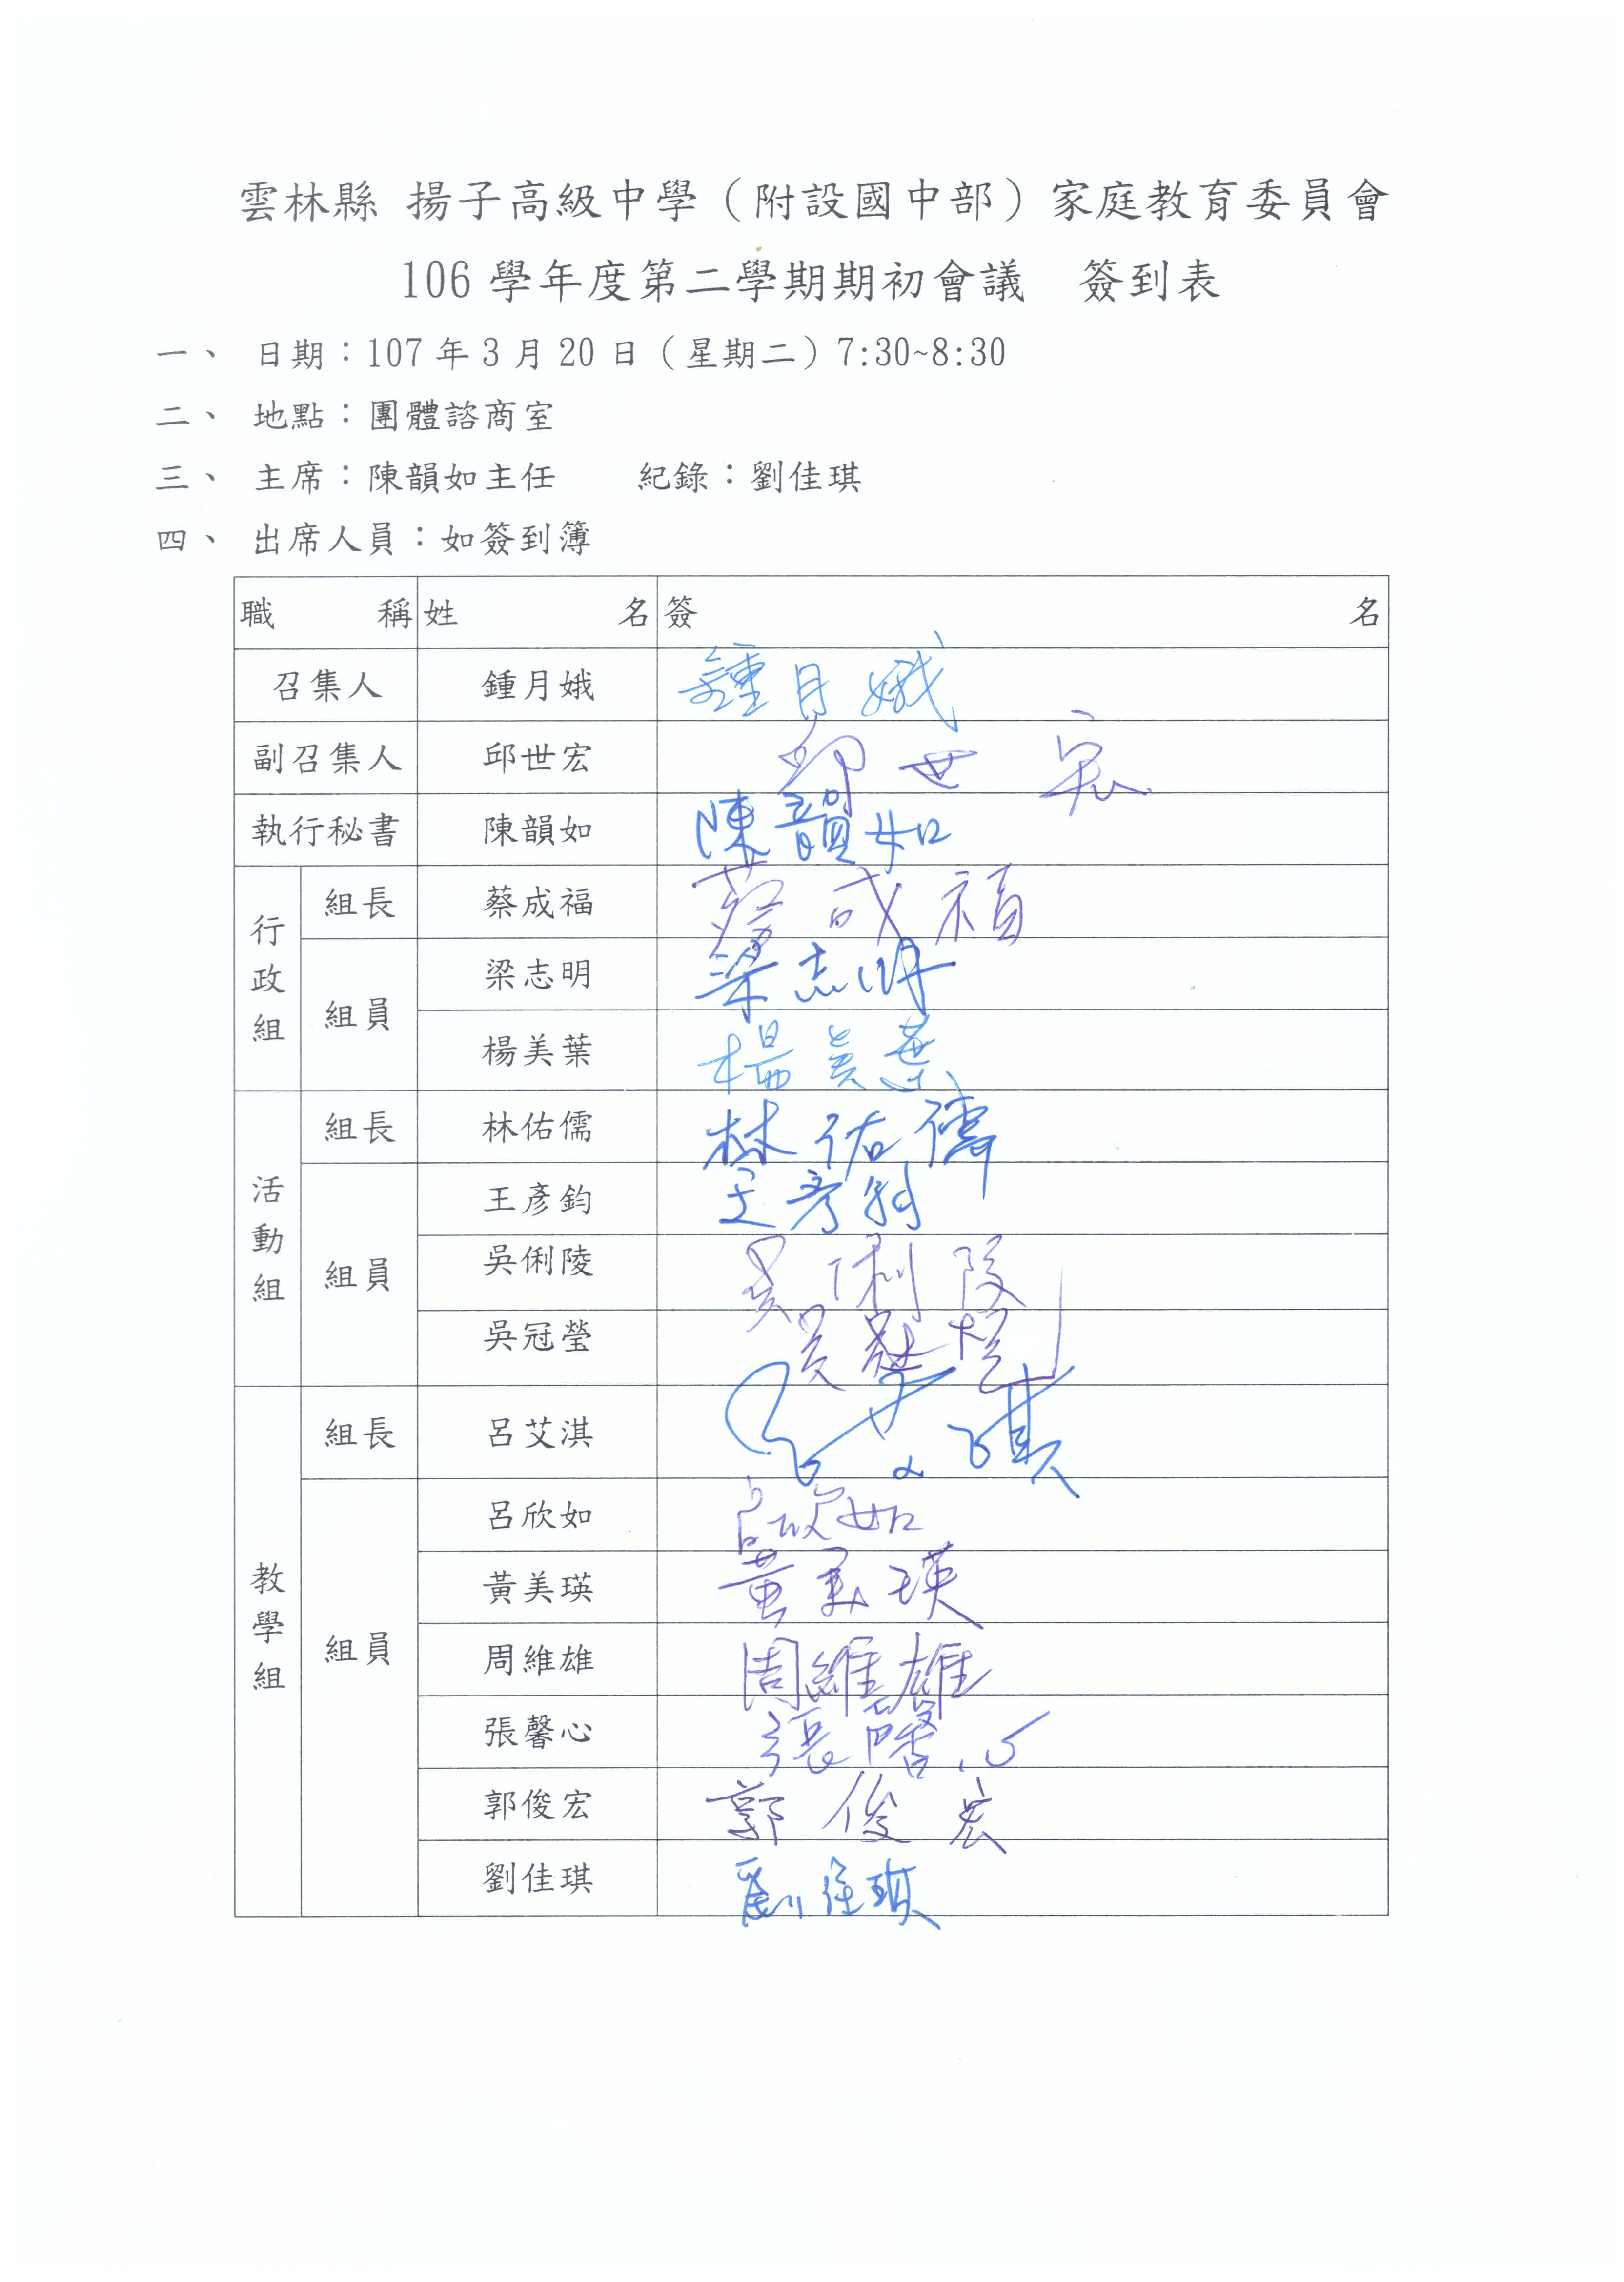 雲林縣 揚子高級中學（附設國中部）家庭教育委員會
106 學年度第二學期期初會議 簽到表
一、 日期：107 年 3 月 20 日（星期二）7:30~8:30
二、 地點：團體諮商室
三、 主席：陳韻如主任 紀錄：劉佳琪
四、 出席人員：如簽到簿
職 稱 姓 名 簽 名
召集人 鍾月娥 鍾月娥
副召集人 邱世宏 邱世宏
執行秘書 陳韻如 陳韻如
行政組 組長 蔡成福 蔡成福
組員 梁志明 梁志明
楊美葉 楊美葉
活動組 組長 林佑儒 林佑儒
組員 王彥鈞 王彥鈞
吳俐陵 吳俐陵
吳冠瑩 吳冠瑩
教學組 組長 呂艾淇
組員 呂欣如 呂欣如
黃美瑛 黃美瑛
周維雄 周維雄
張馨心 張馨心
郭俊宏 郭俊宏
劉佳琪 劉佳琪